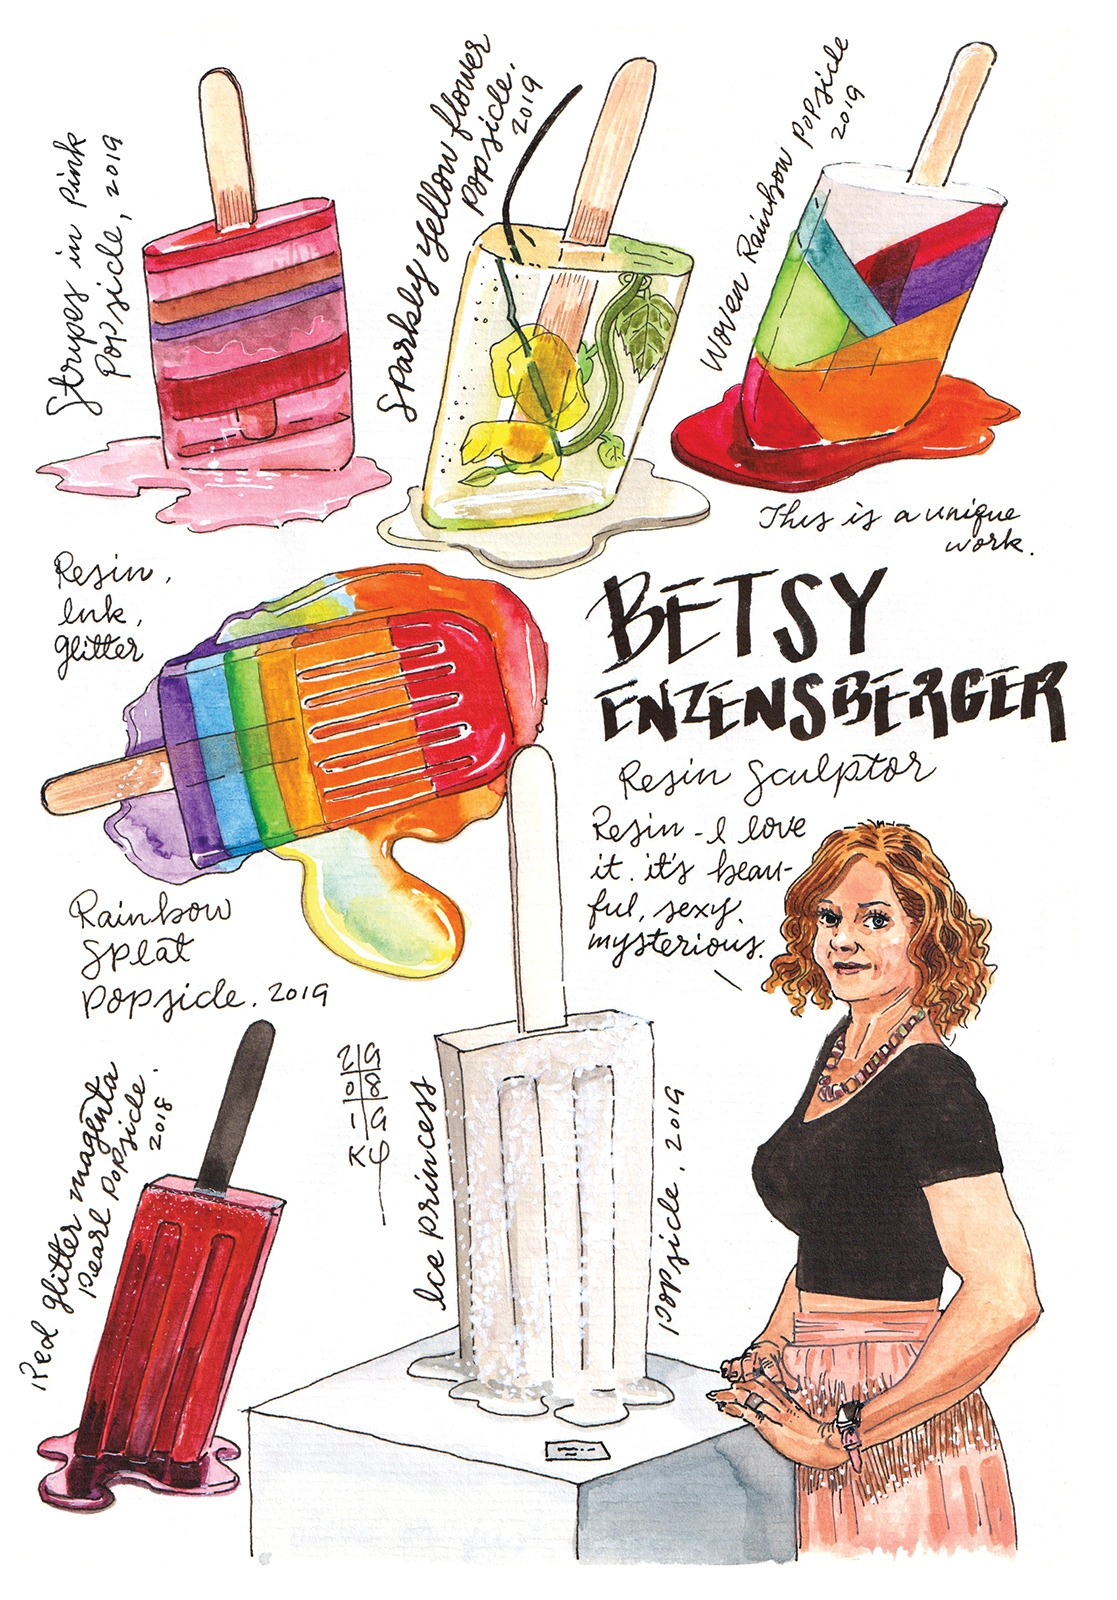 Strypes in Pink
Popsicle, 2019
Sparkly Yellow flower
popsicle.
2019
Woven Rainbow popsicle
2019
This is a unique
work.
Resin,
Ink,
glitter
BETSY
ENZENSBERGER
Resin Sculptor
Resin - I love
it. it's beau-
ful, sexy.
mysterious.
Rainbow
Splat
popsicle. 2019
Red glitter magenta
pearl popsicle.
2018
Ice princess
popsicle, 2019